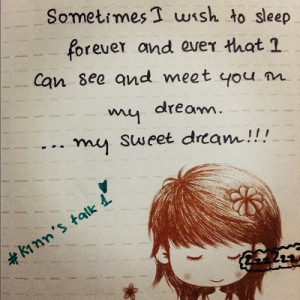 Sometimes I wish to sleep
forever and ever that I
can see and meet you in
my dream.
... my sweet dream!!!
#Kinn's talk 1
Zzzzz